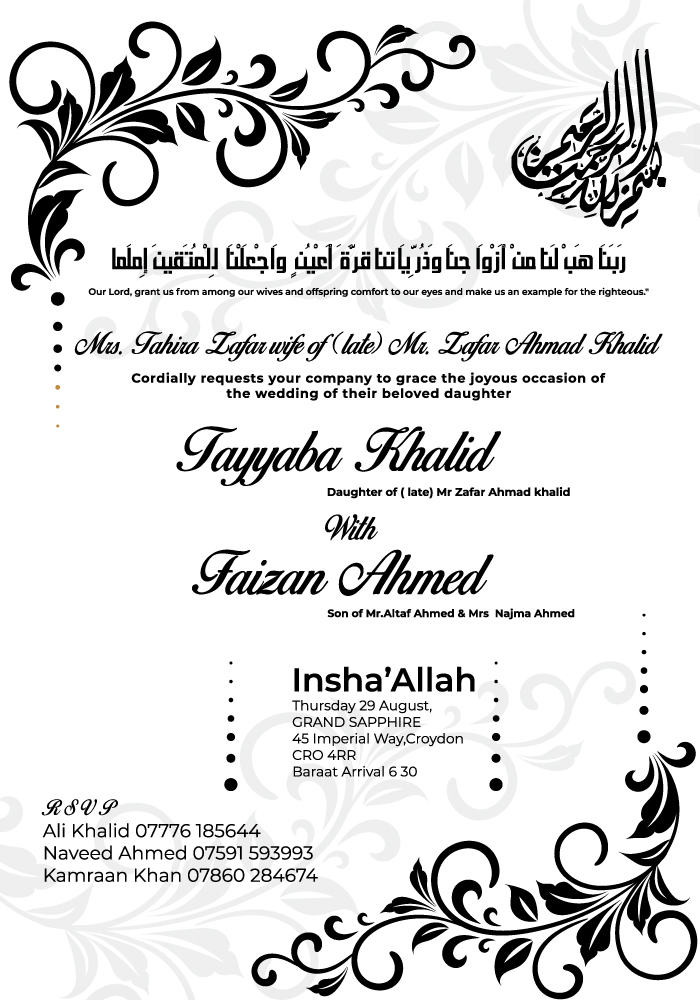 بسم الله الرحمن الرحيم
رَبَنَا هَبْ لَنَا مِنْ أَزْوَا جِنَا وَذُرِّيَاتنَا قرَّةَ أَعْيُنٍ وَاَجْعَلْنَا لِلْمُتَقينَ إِملَما
Our Lord, grant us from among our wives and offspring comfort to our eyes and make us an example for the righteous."
Mrs. Tahira Zafar wife of ( late) Mr. Zafar Ahmad Khalid
Cordially requests your company to grace the joyous occasion of
the wedding of their beloved daughter
Tayyaba Khalid
Daughter of ( late) Mr Zafar Ahmad khalid
With
Faizan Ahmed
Son of Mr.Altaf Ahmed & Mrs Najma Ahmed
Insha’Allah
Thursday 29 August,
GRAND SAPPHIRE
45 Imperial Way,Croydon
CRO 4RR
Baraat Arrival 6 30
RSVP
Ali Khalid 07776 185644
Naveed Ahmed 07591 593993
Kamraan Khan 07860 284674